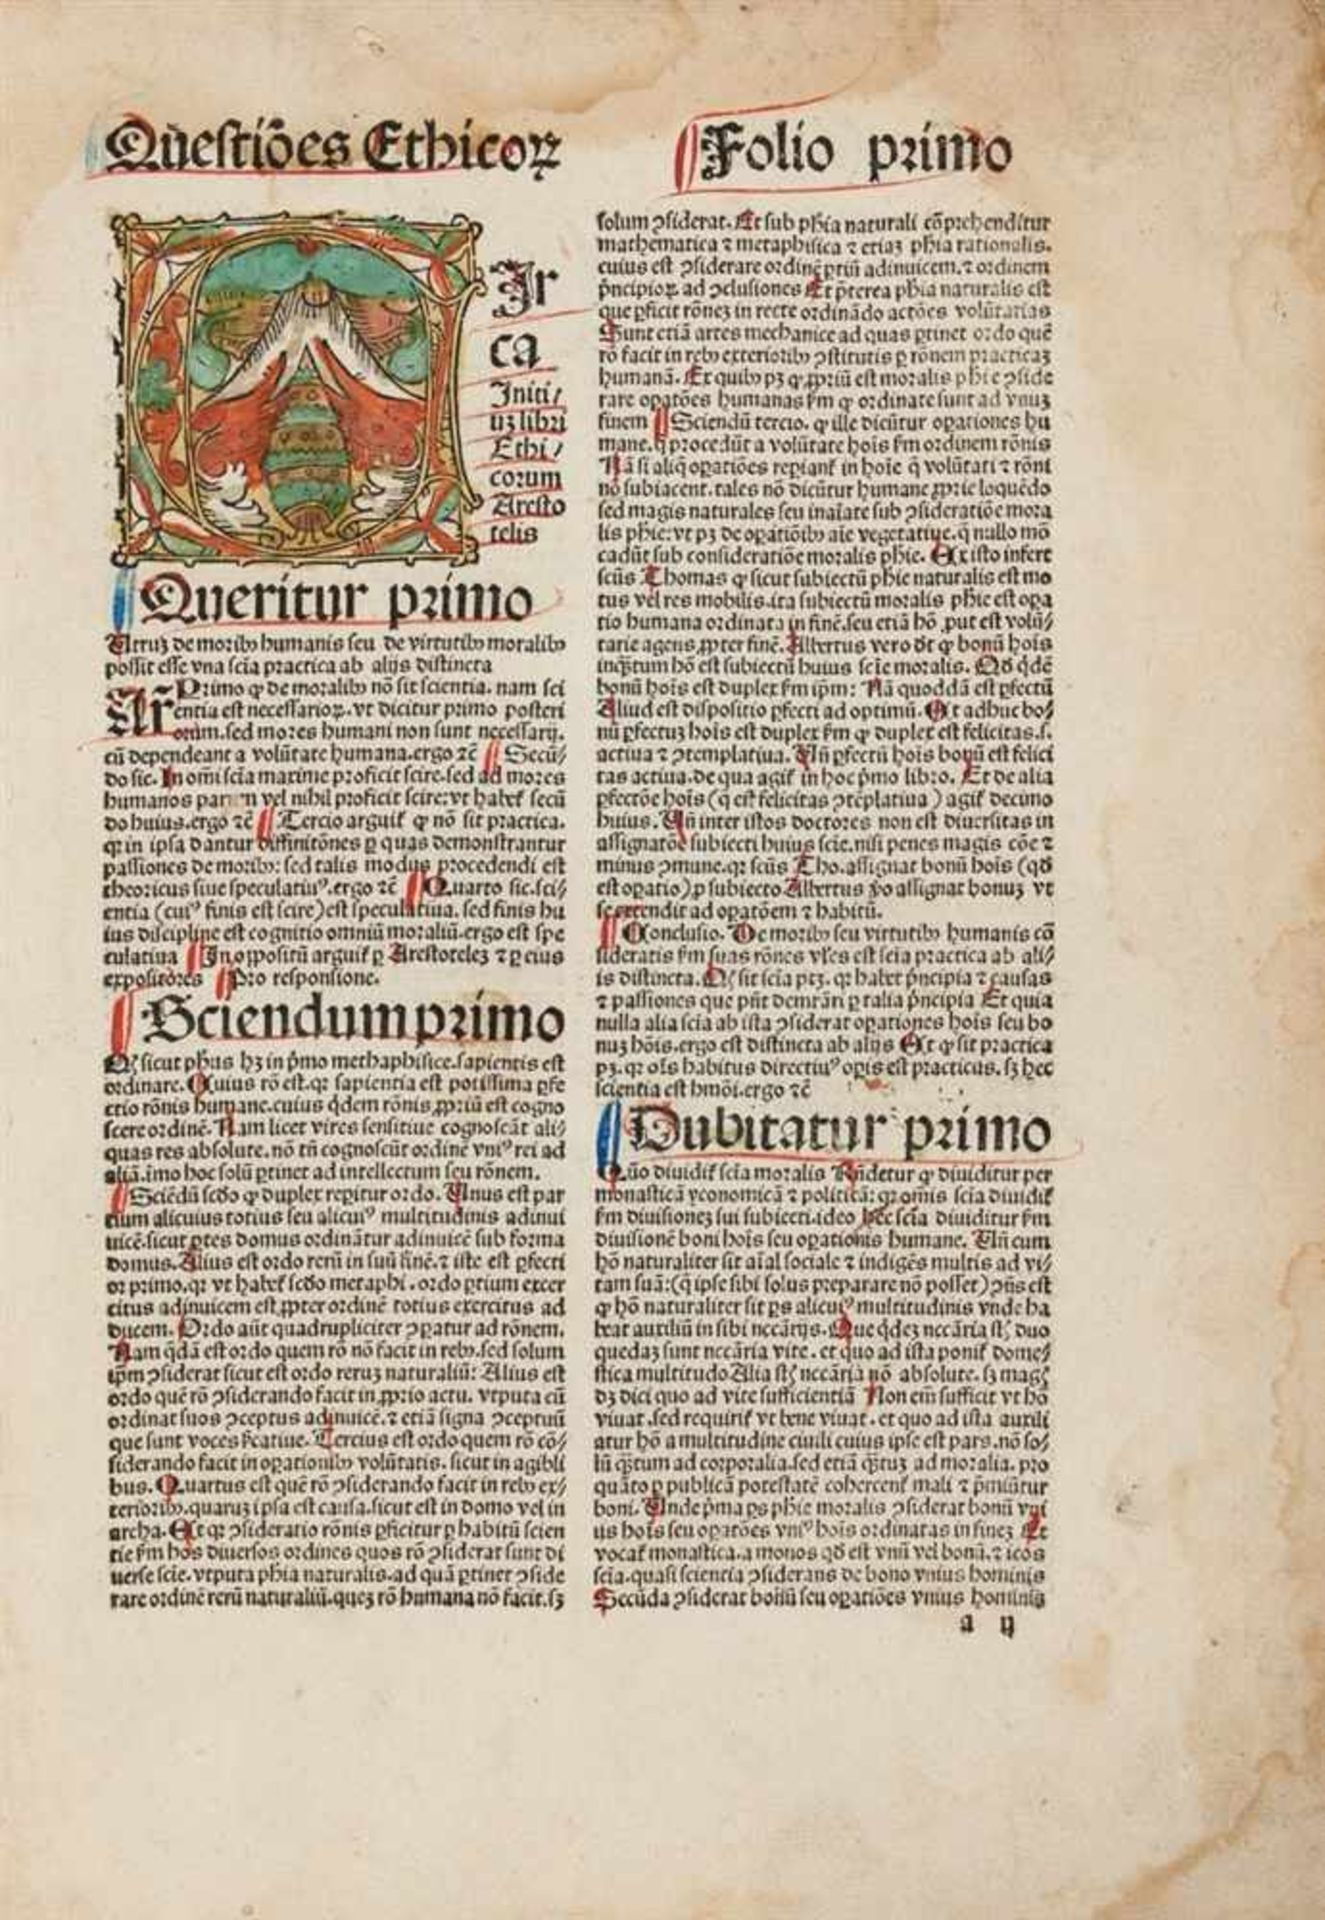 Questiões Ethicoꝝ
Folio primo
Cir
ca
Initi/
uʒ libri
Ethi/
corum
Aresto
telis
Queritur primo
Utruʒ de moribꝰ humanis seu de virtutibꝰ moralibꝰ
possit esse vna scia practica ab alijs distincta
Ar̃ Primo ꝙ de moralibꝰ nõ sit scientia. nam sci
entia est necessarioꝝ. vt dicitur primo posteri
orum. sed mores humani non sunt necessarij.
cũ dependeant a volũtate humana. ergo ⁊c̃ Secũ/
do sic. In om̃i scĩa maxime proficit scire. sed ad mores
humanos parum vel nihil proficit scire: vt habet᷑ secũ
do huius. ergo ⁊c̃ Tercio arguit᷑ ꝙ nõ sit practica.
qꝛ in ipsa dantur diffinitõnes ꝑ quas demonstrantur
passiones de moribꝰ: sed talis modus procedendi est
theoricus siue speculatiuꝰ. ergo ⁊c̃ Quarto sic. sci/
entia (cuiꝰ finis est scire) est speculatiua. sed finis hu
ius discipline est cognitio omniũ moraliũ. ergo est spe
culatiua In oppositũ arguit᷑ ꝑ Arestotelez ⁊ ꝑ eius
expositores Pro responsione.
Sciendum primo
Qꝫ sicut phus hʒ in p̃mo methaphisice. sapientis est
ordinare. Cuius rõ est. qꝛ sapientia est potissima ꝑfe
ctio rõnis humane. cuius q̃dem rõnis ꝓpriũ est cogno
scere ordinẽ. Nam licet vires sensitiue cognoscãt ali/
quas res absolute. nõ tñ cognoscũt ordinẽ vniꝰ rei ad
aliã. imo hoc solũ ꝑtinet ad intellectum seu rõnem.
Sciẽdũ scd̃o ꝙ duplex reꝑitur ordo. Unus est par
tium alicuius totius seu alicuiꝰ multitudinis adinui
uicẽ. sicut ꝑtes domus ordinãtur adinuicẽ sub forma
domus. Alius est ordo rerũ in suũ finẽ. ⁊ iste est ꝑfecti
or primo. qꝛ vt habet᷑ scd̃o metaphi. ordo ꝑtium exer
citus adinuicem est ꝓpter ordinẽ totius exercitus ad
ducem. Ordo aũt quadrupliciter ↄꝑatur ad rõnem.
Nam q̃dã est ordo quem rõ nõ facit in rebꝰ. sed solum
ip̃m ↄsiderat sicut est ordo reruʒ naturaliũ: Alius est
ordo quẽ rõ ↄsiderando facit in ꝓprio actu. vtputa cũ
ordinat suos ↄceptus adinuicẽ. ⁊ etiã signa ↄceptuũ
que sunt voces sig̃catiue. Tercius est ordo quem rõ cõ/
siderando facit in oꝑationibꝰ volũtatis. sicut in agibli
bus. Quartus est quẽ rõ ↄsiderando facit in rebꝰ ex/
terioribꝰ. quaruʒ ipsa est causa. sicut est in domo vel in
archa. Et qꝛ ↄsideratio rõnis ꝑficitur ꝑ habitũ scien
tie sm̃ hos diuersos ordines quos rõ ↄsiderat sunt di
uerse scie. vtputa phĩa naturalis. ad quã ꝑtinet ↄside
rare ordinẽ rerũ naturaliũ. queʒ rõ humana nõ facit. sʒ
solum ↄsiderat. Et sub phĩa naturali cõprehenditur
mathematica ⁊ metaphisica ⁊ etiaʒ phĩa rationalis.
cuius est ↄsiderare ordinẽ ꝑtiũ adinuicem. ⁊ ordinem
p̃ncipioꝝ ad ↄclusiones Et p̃terea phĩa naturalis est
que ꝑficit rõneʒ in recte ordinãdo actões volũtarias
Sunt etiã artes mechanice ad quas ꝑtinet ordo quẽ
rõ facit in rebꝰ exterioribꝰ ↄstitutis ꝑ rõnem practicaʒ
humanã. Ex quibꝰ pʒ ꝙ ꝓpriũ est moralis phĩe ↄside
rare oꝑatões humanas sm̃ ꝙ ordinate sunt ad vnuʒ
finem Sciendũ tercio. ꝙ ille dicũtur oꝑationes hu
mane. q̃ procedũt a volũtate hoĩs sm̃ ordinem rõnis
Nã si aliq̃ oꝑatiões reꝑiant᷑ in hoĩe q̃ volũtati ⁊ rõni
nõ subiacent. tales nõ dicũtur humane ꝓprie loquẽdo
sed magis naturales seu inaĩate sub ↄsideratiõe mora
lis phĩe: vt pʒ de oꝑatiõibꝰ aĩe vegetatiue. q̃ nullo mõ
cadũt sub consideratiõe moralis phĩe. Ex isto infert
scũs Thomas ꝙ sicut subiectũ phĩe naturalis est mo
tus vel res mobilis. ita subiectũ moralis phĩe est oꝑa
tio humana ordinata in finẽ. seu etiã hõ ꝓut est volũ/
tarie agens ꝓpter finẽ. Albertus vero dt̃ ꝙ bonũ hoĩs
inqꝫtum hõ est subiectũ huius scie moralis. Qd̃ q̃dẽ
bonũ hoĩs est duplex sm̃ ip̃m: Nã quoddã est ꝑfectũ
Aliud est dispositio ꝑfecti ad optimũ. Et adhuc bo/
nũ ꝑfectuʒ hoĩs est duplex sm̃ ꝙ duplex est felicitas. s.
actiua ⁊ ↄtemplatiua. Uñ ꝑfectũ hoĩs bonũ est felici
tas actiua. de qua agit᷑ in hoc p̃mo libro. Et de alia
ꝑfectõe hoĩs (q̃ est felicitas ↄtẽplatiua) agit᷑ decimo
huius. Uñ inter istos doctores non est diuersitas in
assignatõe subiecti huius scie. nisi penes magis cõe ⁊
minus ↄmune. qꝛ scũs Tho. assignat bonũ hoĩs (qd̃
est oꝑatio) ꝓ subiecto Albertus ṽo assignat bonuʒ vt
se extendit ad oꝑatõem ⁊ habitũ.
Conclusio. De moribꝰ seu virtutibꝰ humanis cõ
sideratis sm̃ suas rõnes vl̃es est scĩa practica ab ali/
is distincta. Qꝫ sit scĩa ptʒ. qꝛ habet p̃ncipia ⁊ causas
⁊ passiones que pñt demrãri ꝑ talia p̃ncipia Et quia
nulla alia scĩa ab ista ↄsiderat oꝑationes hoĩs seu bo
nuʒ hoĩs. ergo est distincta ab alijs Et ꝙ sit practica
pʒ. qꝛ oĩs habitus directiuꝰ oꝑis est practicus. sʒ hec
scientia est hmõi. ergo ⁊c̃
Dubitatur primo
Quõ diuidit᷑ scĩa moralis Rñdetur ꝙ diuiditur per
monasticã yconomicã ⁊ politicã: qꝛ om̃is scĩa diuidit᷑
sm̃ diuisioneʒ sui subiecti. ideo hec scĩa diuiditur sm̃
diuisionẽ boni hoĩs seu oꝑationis humane. Uñ cum
hõ naturaliter sit aĩal sociale ⁊ indigẽs multis ad vi/
tam suã: (q̃ ipse sibi solus preparare nõ posset) ↄñs est
ꝙ hõ naturaliter sit ꝑs alicuiꝰ multitudinis vnde ha
beat auxiliũ in sibi necãrijs. Que q̃deʒ necãria sꝫ duo
quedaʒ sunt necãria vite. et quo ad ista ponit᷑ dome/
stica multitudo Alia sꝫ necãria nõ absolute. sʒ magꝭ
dʒ dici quo ad vite sufficientiã Non em̃ sufficit vt hõ
viuat. sed requirit᷑ vt bene viuat. et quo ad ista auxili
atur hõ a multitudine ciuili cuius ipse est pars. nõ so/
lũ qꝫtum ad corporalia. sed etiã qꝫtuʒ ad moralia. pro
quãto ꝑ publicã potestatẽ cohercent᷑ mali ⁊ p̃miũtur
boni. Unde p̃ma ꝑs phĩe moralis ↄsiderat bonũ vni
us hoĩs seu oꝑatões vniꝰ hoĩs ordinatas in fineʒ Et
vocat᷑ monastica. a monos qd̃ est vnũ vel bonũ. ⁊ icos
scĩa. quasi scientia ↄsiderans de bono vnius hominis
Secũda ↄsiderat bonũ seu oꝑatiões vnius hominis
a ij